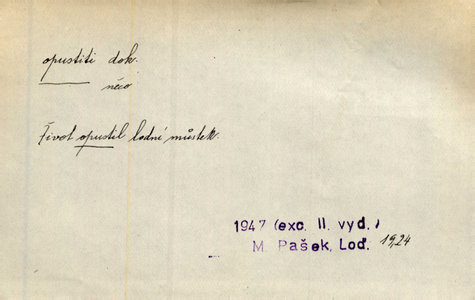 opustiti dok.
něco
Život opustil lodní můstek.
1947 (exc. II. vyd.)
M. Pašek, Loď. 19,24